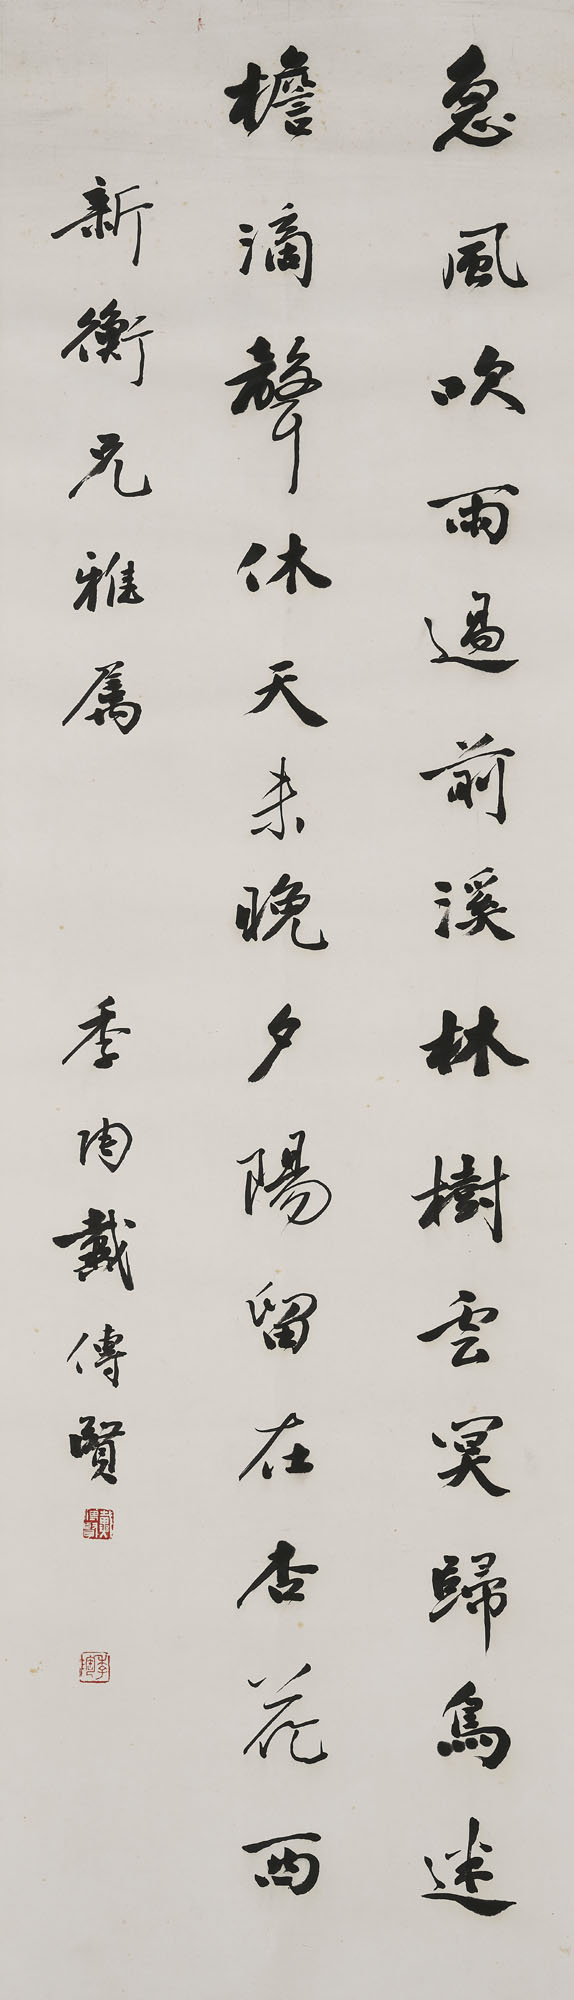 急風吹雨過前溪林樹雲冥歸鳥迷
檐滴聲休天未晚夕陽留在杏花西
新衡兄雅属
季陶戴傳賢
戴傳賢
季陶